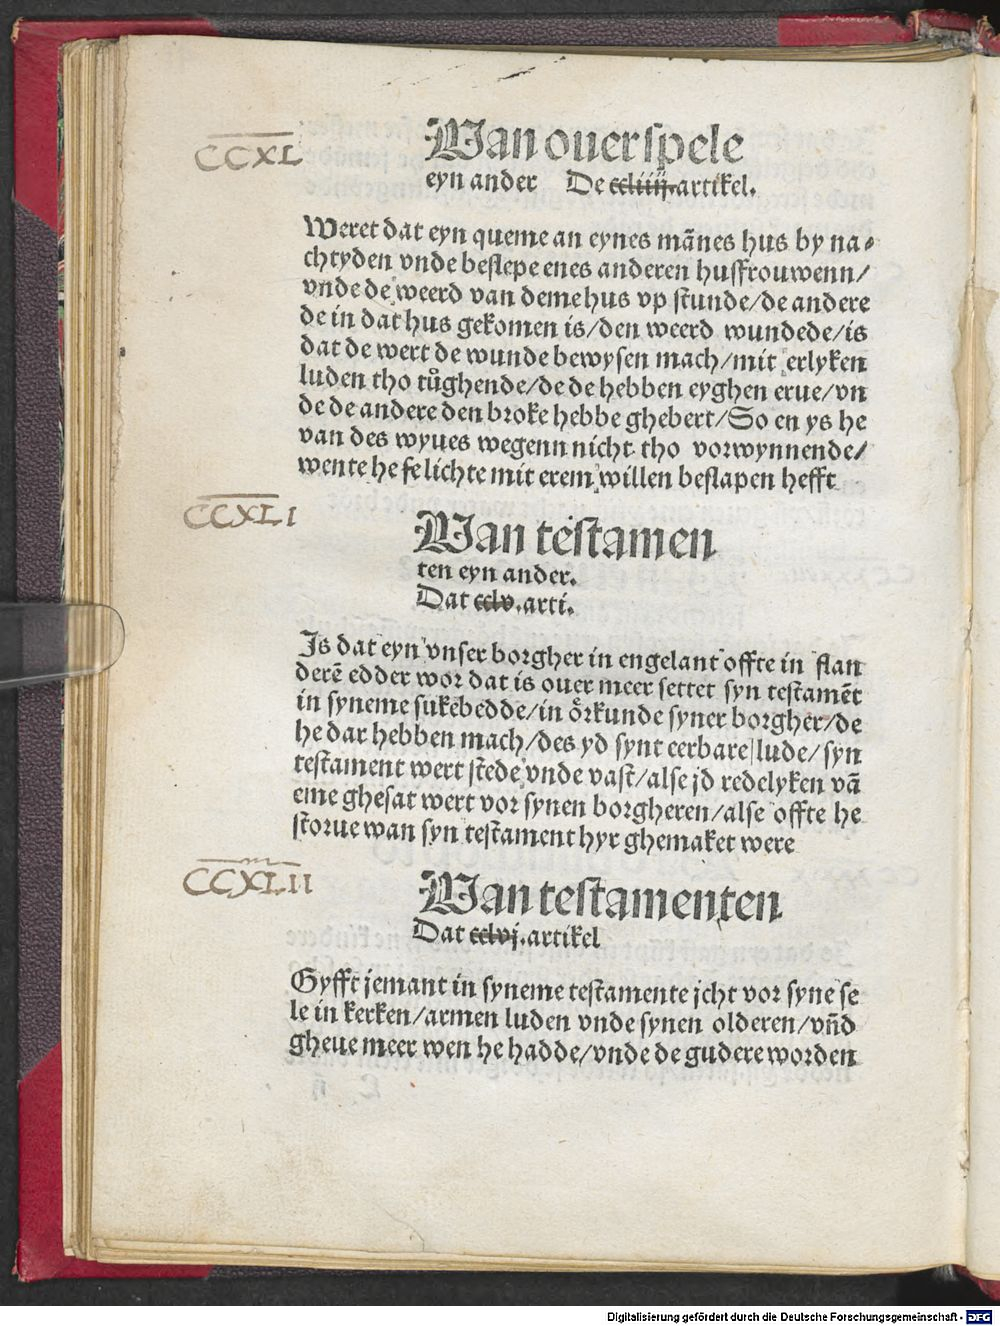 CCXL
Van ouerspele
eyn ander De ccliiij. artikel.
Weret dat eyn queme an eynes mānes hus by na-
chtyden vnde beslepe enes anderen husfrouwenn/
vnde de weerd van deme hus vp stunde/de andere
de in dat hus gekomen is/den weerd wundede/is
dat de wert de wunde bewysen mach/mit erlyken
luden tho tůghende/de de hebben eyghen erue/vn
de de andere den broke hebbe ghebert/So en ys he
van des wyues wegenn nicht tho vorwynnende/
wente he se lichte mit erem willen beslapen hefft
CCXLI
Van testamen
ten eyn ander.
Dat cclv. arti.
Is dat eyn vnser borgher in engelant offte in flan
derē edder wor dat is ouer meer settet syn testamēt
in syneme sukebedde/in örkunde syner borgher/de
he dar hebben mach/des yd synt eerbare lude/syn
testament wert stede vnde vast/alse jd redelyken vā
eme ghesat wert vor synen borgheren/alse offte he
storue wan syn testament hyr ghemaket were
CCXLII
Van testamenten
Dat cclvj. artikel
Gyfft jemant in syneme testamente jcht vor syne se
le in kerken/armen luden vnde synen olderen/vn̄d
gheue meer wen he hadde/vnde de gudere worden
Digitalisierung gefördert durch die Deutsche Forschungsgemeinschaft - DFG